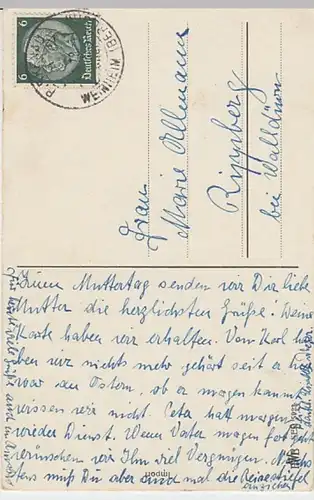 6
Deutsches Reich
6
WEINHEIM (BERGSTR
Frau
Marie Allmann
Rippberg
bei Walldürn
Zum Muttertag senden wir Dir liebe
Mutter die herzlichsten Grüße! Deine
Karte haben wir erhalten. Von Karl ha-
ben wir nichts mehr gehört seit er hier
war an Ostern, ob er morgen kommt
wissen wir nicht. Peta hat morgen
wieder Dienst. Wenn Vater morgen fort geht
wünschen wir Ihm viel Vergnügen.
mußt Du aber mal die Reisestiefel
anziehen
Grüße